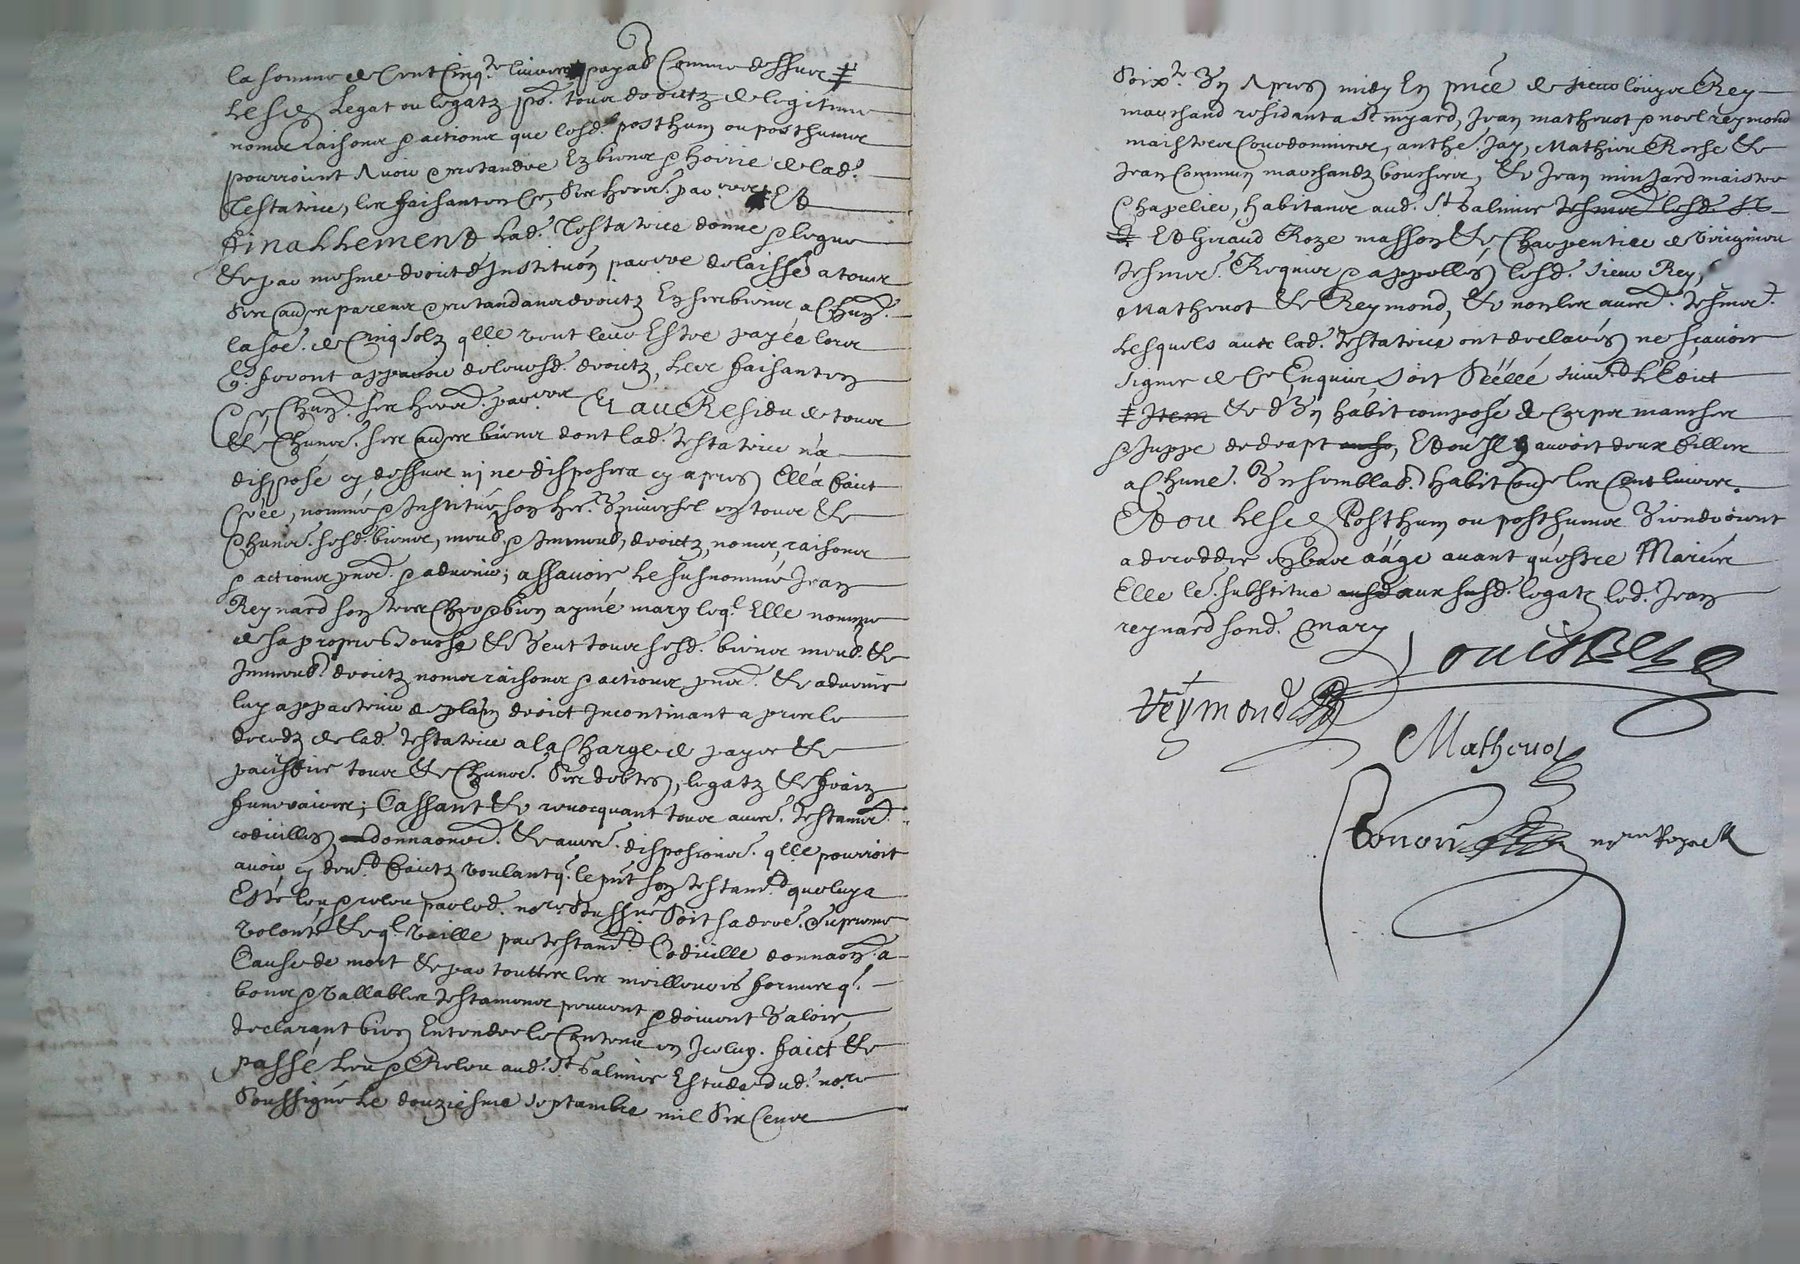 la somme de Cent Cinq.te livres payab. Comme dessus ǂ
Lesd. Legat ou legatz p.r tous droictz de legitime
noms raisons & actions que lesd. posthum ou posthumes
pourroient Avoir & pretandre Ez biens & hoirie de lad.
Testatrice, les faisant en Ce, Ses herers. par.ers Et
Finallement Lad. Testatrice donne & legue
& par mesme droict d'Institu.on par.re delaisse a tous
Ses au.es parens & pretandans droictz En ses biens a Chun.
la so.e de Cinq solz q.lle veut leur Estre payée lors
q. feront apparoir de leursd. droictz, Les faisant en
Ce Chun. ses herers. par.ers Et au Residu de tous
& Chuns. ses au.es biens dont lad. Testatrice n'a
disposé cy dessus ny ne disposera cy apres Ella faict
Créé, nommé & Institué son her. Universel en tous &
Chuns. sesd. biens, meub. & Immeub, droictz, noms, raisons
& actions pnts. & advenir; assavoir Le susnommé Jean
Reynard son tres Cher & bien aymé mary leq.l Elle nomme
de sa propre bouche & Veut tous sesd. biens meub. &
Immeub. droictz noms raisons & actions pnts. & advenir
luy appartenir de plain droict Incontinant apres le
decedz de lad. Testatrice a la Charge de payer &
paciffier tous & Chuns. Ses debtes, legatz & fraiz
funeraires; Cassant & revocquant tous aues. Testamts.
codicilles donnaons. & aues. disposions. q.lle pourroit
avoir cy devt. faictz voulant q. le pnt son Testamt. que luy a
Esté leu & releu par led. no.re Soussné Soit sa dere. Supreme
volonté & q.l vaille par testamt. Codicille donnaon. a
Cause de mort & par touttes les meilleures formes q.
bons & vallables testamens peuvent & doivent Valoir,
declarant bien Entendre le Contenu en Iceluy. faict &
passé Leu & Releu aud. St Galmier Estude dud. no.re
Soussigné Le douziesme septambre mil Six Cens
Soix.te Un Apres midy En pnce de sieur louys Rey
marchand residant a St meyard, Jean mathevot & noel reymond
maistres Courdonniers, anthe. Jay, Mathieu Roche &
Jean Commun marchandz bouchers, & Jean minjard maistre
Chapelier, habitans aud. St Galmier tesmoins lesd. St
Et Giraud Roze masson & Charpentier de Virigneu
tesmns. Requis & appelles lesd. sieur Rey,
Mathevot & Reymond, & non les aues. tesmns.
Lesquels avec lad. Testatrice ont declarés ne sçavoir
signer de Ce Enquis Soit Séellé suivt. L'Edict
ǂ Item & d'Un habit composé de Corps manches
& Juppe de drapt, Et ou Il y auroit deux filles
a Chune. Un semblab. habit Outre les Cent livres.
Et ou Lesd. Posthum ou posthumes Viendroient
a dececder en bas aâge avant qu'estre Mariés
Elle le. substitue ausd. aux susd. legatz led. Jean
reynard sond. mary
Louis Rey
reymond
Mathevot
no.re Royal